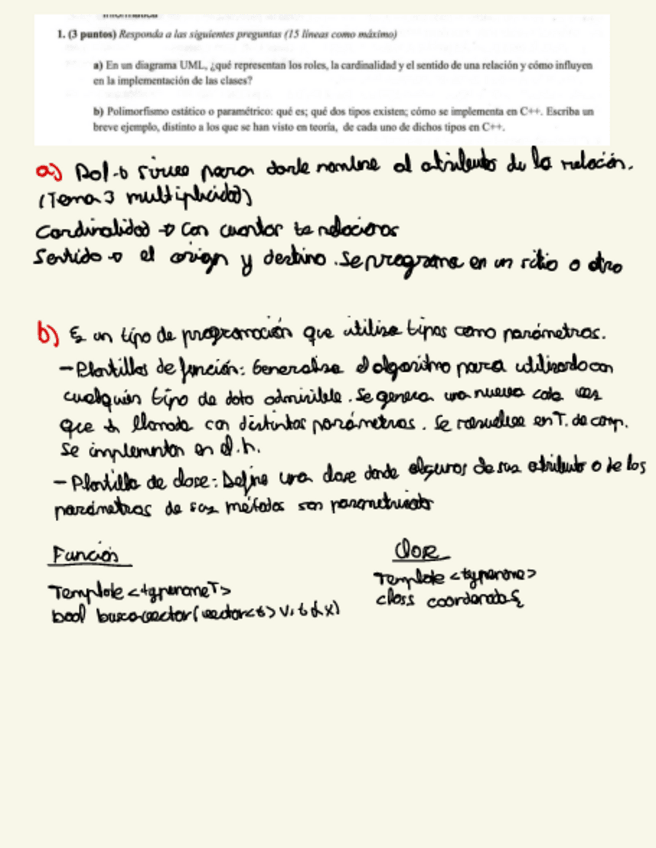 Informática
1. (3 puntos) Responda a las siguientes preguntas (15 líneas como máximo)
a) En un diagrama UML, ¿qué representan los roles, la cardinalidad y el sentido de una relación y cómo influyen
en la implementación de las clases?
b) Polimorfismo estático o paramétrico: qué es; qué dos tipos existen; cómo se implementa en C++. Escriba un
breve ejemplo, distinto a los que se han visto en teoría, de cada uno de dichos tipos en C++.
a) Rol → sirve para darle nombre al atributo de la relación.
(Tema 3 multiplicidad)
Cardinalidad → Con cuantos te relacionas
Sentido → el origen y destino. Se programa en un sitio o otro
b) Es un tipo de programación que utiliza tipos como parámetros.
- Plantillas de función: Generaliza el algoritmo para utilizarlo con
cualquier tipo de dato admisible. Se genera una nueva cada vez
que es llamada con distintos parámetros. Se resuelve en T. de comp.
Se implementan en el .h.
- Plantilla de clase: Define una clase donde algunos de sus atributo o de los
parámetros de sus métodos son
Función
Template <typename T>
bool (vector<t> v, t x)
Clase
Template <typename>
class